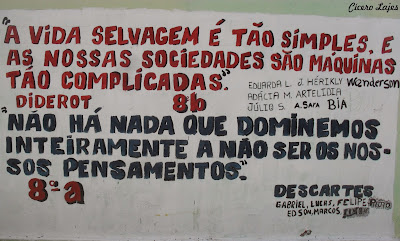 Cicero Lajes
"A VIDA SELVAGEM É TÃO SIMPLES, E
AS NOSSAS SOCIEDADES SÃO MÁQUINAS
TÃO COMPLICADAS."
EDUARDA L. J. HÉRIKLY Wanderson
ADÁCIA M. ARTELIDIA
JÚLIO S. A. SARA BIA
DIDEROT, 8b
"NÃO HÁ NADA QUE DOMINEMOS
INTEIRAMENTE A NÃO SER OS NOS-
SOS PENSAMENTOS."
8ª a
DESCARTES
GABRIEL, LUCAS, FELIPE
EDSON, MARCOS